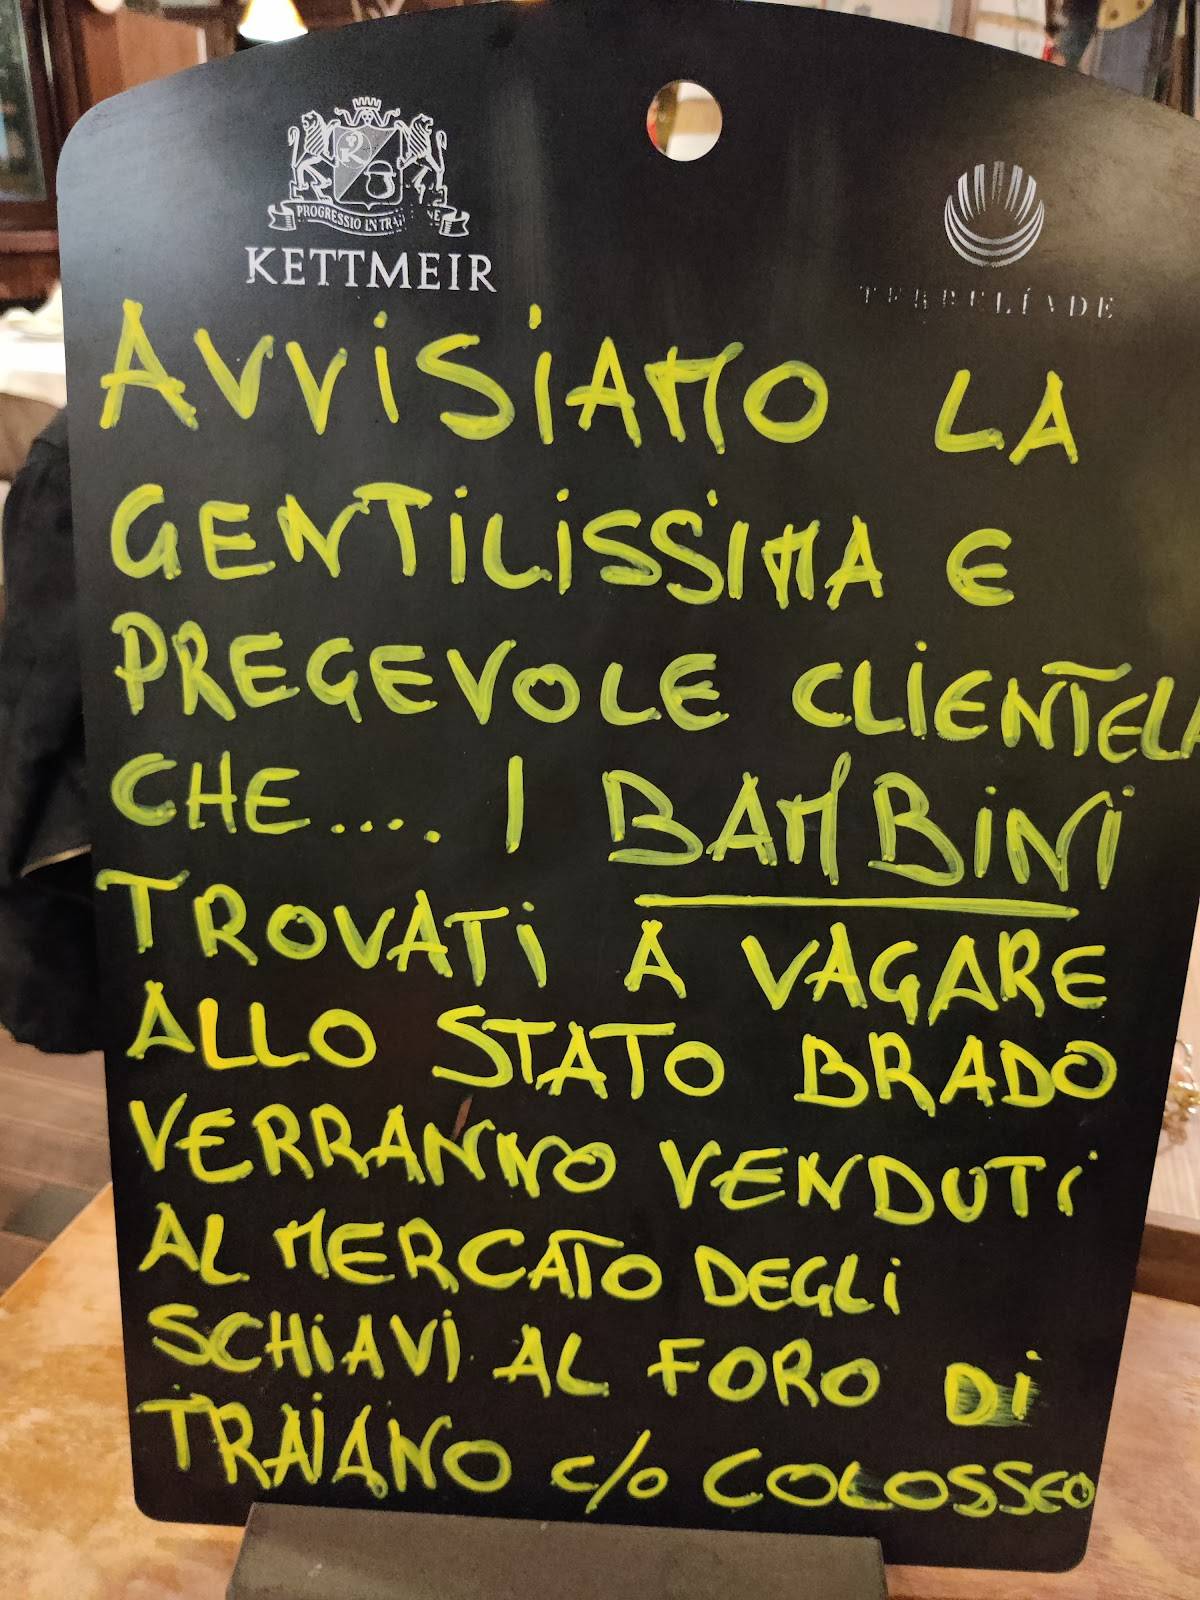 PROGRESSIO IN
KETTMEIR
AVVISIAMO LA
GENTILISSIMA E
PREGEVOLE CLIENTELA
CHE.... I BAMBINI
TROVATI A VAGARE
ALLO STATO BRADO
VERRANNO VENDUTI
AL MERCATO DEGLI
SCHIAVI AL FORO DI
TRAIANO c/o COLOSSEO